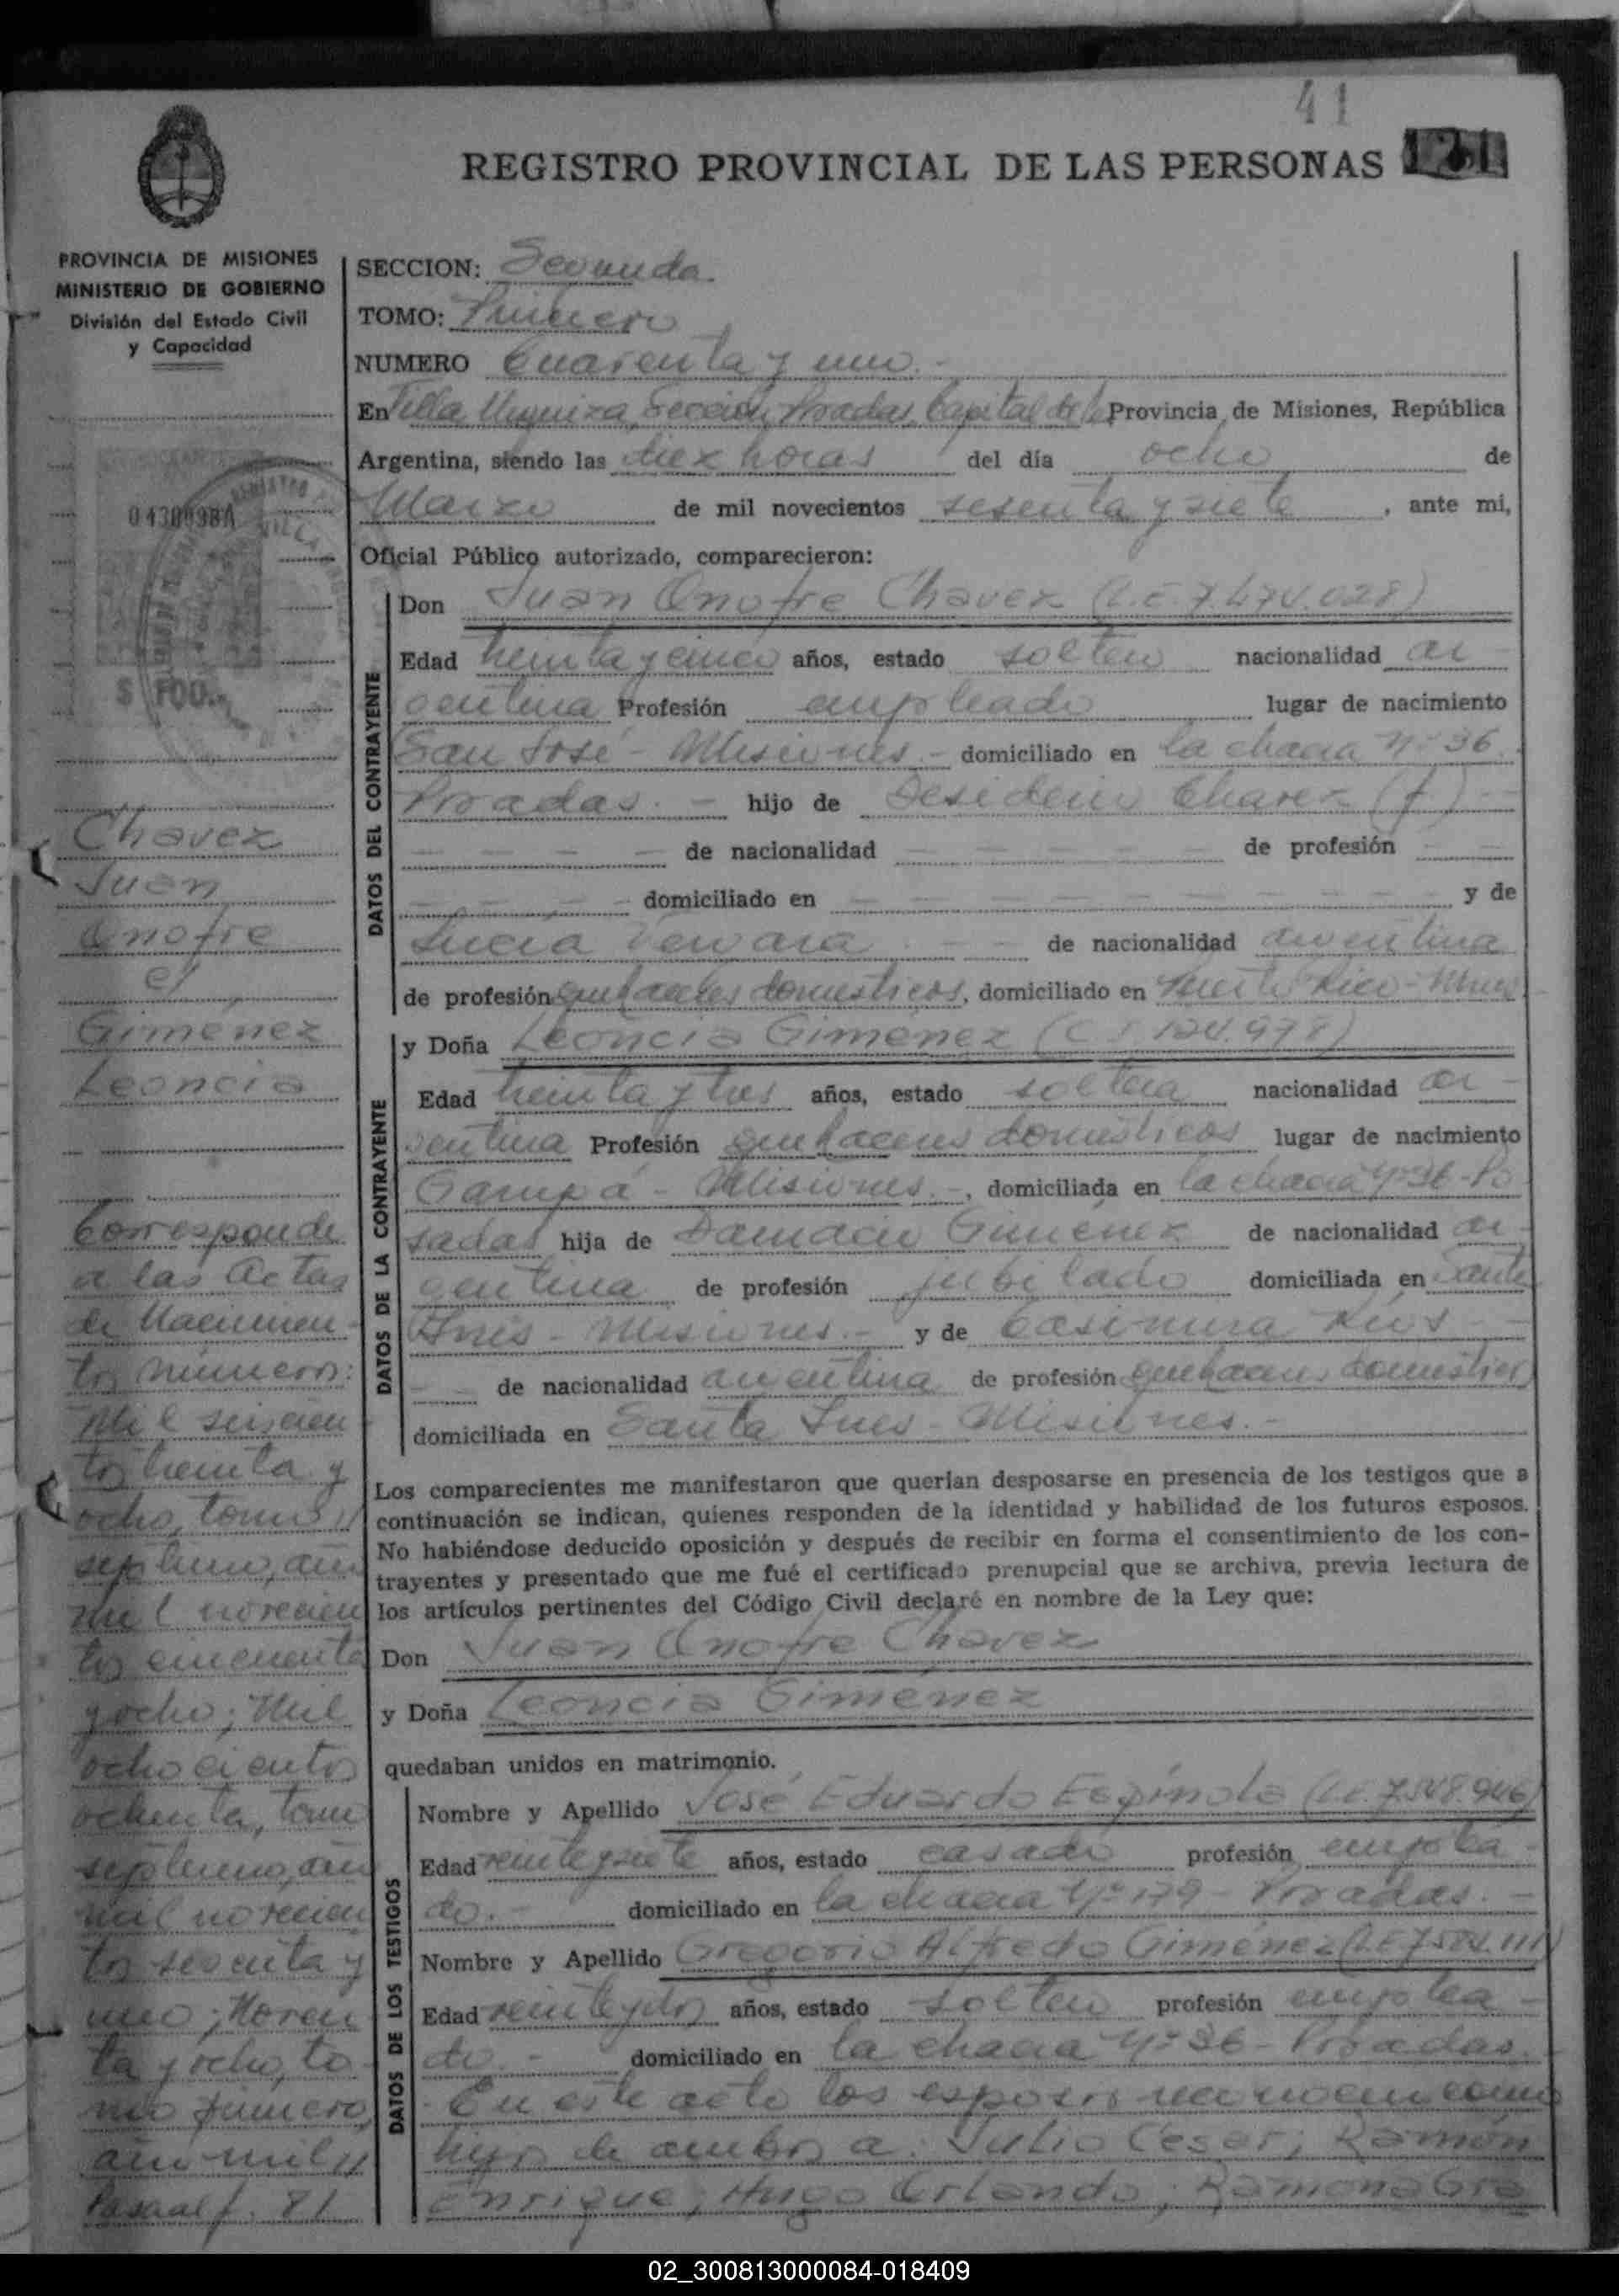 41
REGISTRO PROVINCIAL DE LAS PERSONAS
PROVINCIA DE MISIONES
MINISTERIO DE GOBIERNO
División del Estado Civil
y Capacidad
0430998A
$ 100.-
Chavez
Juan
Onofre
c/
Gimenez
Leoncia
Corresponde
a las Actas
de Nacimien-
tos números:
Mil seiscien
tos treinta y
ocho, tomo
septimo, año
mil novecien
tos cincuenta
y ocho; Mil
ochocientos
ochenta, tomo
septimo, año
mil novecien
tos sesenta y
uno; Noven
ta y ocho, to-
mo primero,
año mil
Pasa al f. 81
SECCION: Segunda.
TOMO: Primero
NUMERO Cuarenta y uno.-
En Villa Urquiza, Sección Posadas, Capital de la Provincia de Misiones, República
Argentina, siendo las diez horas del día ocho de
Marzo de mil novecientos sesenta y siete, ante mi,
Oficial Público autorizado, comparecieron:
DATOS DEL CONTRAYENTE
Don Juan Onofre Chavez (L.E. 7.474.028)
Edad treinta y cinco años, estado soltero nacionalidad ar-
gentina Profesión empleado lugar de nacimiento
San José - Misiones.- domiciliado en la chacra Nº 36
Posadas.- hijo de Desiderio Chavez (f)--
- - - - de nacionalidad - - - - de profesión - -
- - - - domiciliado en - - - - - - - - y de
Lucia Vergara. - - de nacionalidad argentina
de profesión quehaceres domesticos, domiciliado en Puerto Rico - Mnes
DATOS DE LA CONTRAYENTE
y Doña Leoncia Gimenez (C.I. 124.978)
Edad treinta y tres años, estado soltera nacionalidad ar-
gentina Profesión quehaceres domésticos lugar de nacimiento
Garupá - Misiones.-, domiciliada en la chacra Nº 36 - Po
sadas hija de Damacio Gimenez de nacionalidad ar-
gentina de profesión jubilado domiciliada en Santa
Inés - Misiones.- y de Casimira Rios - -
- - de nacionalidad argentina de profesión quehaceres domésticos
domiciliada en Santa Ines - Misiones.-
Los comparecientes me manifestaron que querían desposarse en presencia de los testigos que a
continuación se indican, quienes responden de la identidad y habilidad de los futuros esposos.
No habiéndose deducido oposición y después de recibir en forma el consentimiento de los con-
trayentes y presentado que me fué el certificado prenupcial que se archiva, previa lectura de
los artículos pertinentes del Código Civil declaré en nombre de la Ley que:
Don Juan Onofre Chavez
y Doña Leoncia Gimenez
quedaban unidos en matrimonio.
DATOS DE LOS TESTIGOS
Nombre y Apellido José Eduardo Espíndola (L.E. 7.548.946)
Edad veintisiete años, estado casado profesión emplea-
do.- domiciliado en la chacra Nº 179 - Posadas.-
Nombre y Apellido Gregorio Alfredo Gimenez (L.E 7584.111)
Edad veintidos años, estado soltero profesión emplea-
do.- domiciliado en la chacra Nº 36 - Posadas.
En este acto los esposos reconocen como
hijos de ambos a: Julio Cesar; Ramón
Enrique; Hugo Orlando; Ramona Gra
02_300813000084-018409